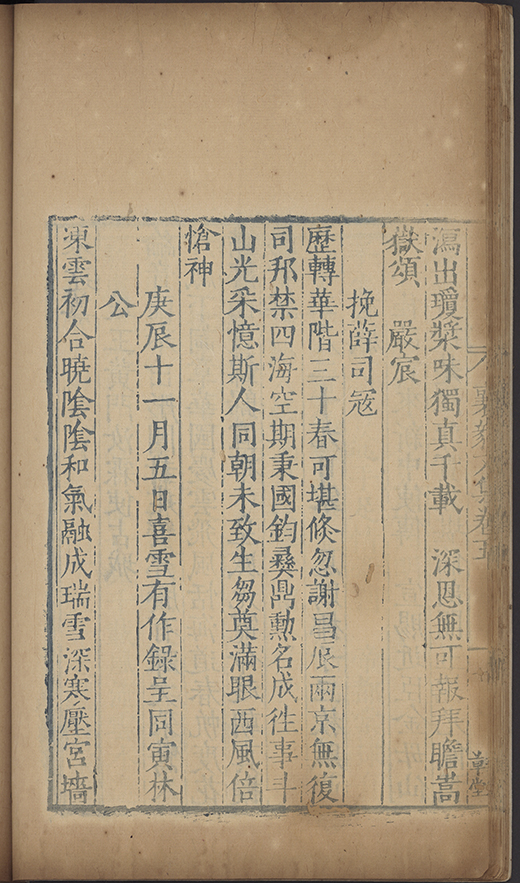 瀉出瓊漿味獨真千載　深恩無可報拜瞻嵩
嶽頌　嚴宸
挽薛司冦
歷轉華階三十春可堪倐忽謝昌辰兩京無復
司邦禁四海空期秉國鈞彝鼎勲名成徃事斗
山光采憶斯人同朝未致生芻奠滿眼西風倍
愴神
庚辰十一月五日喜雪有作錄呈同寅林
公
凍雲初合曉陰陰和氣融成瑞雪深寒壓宮墻